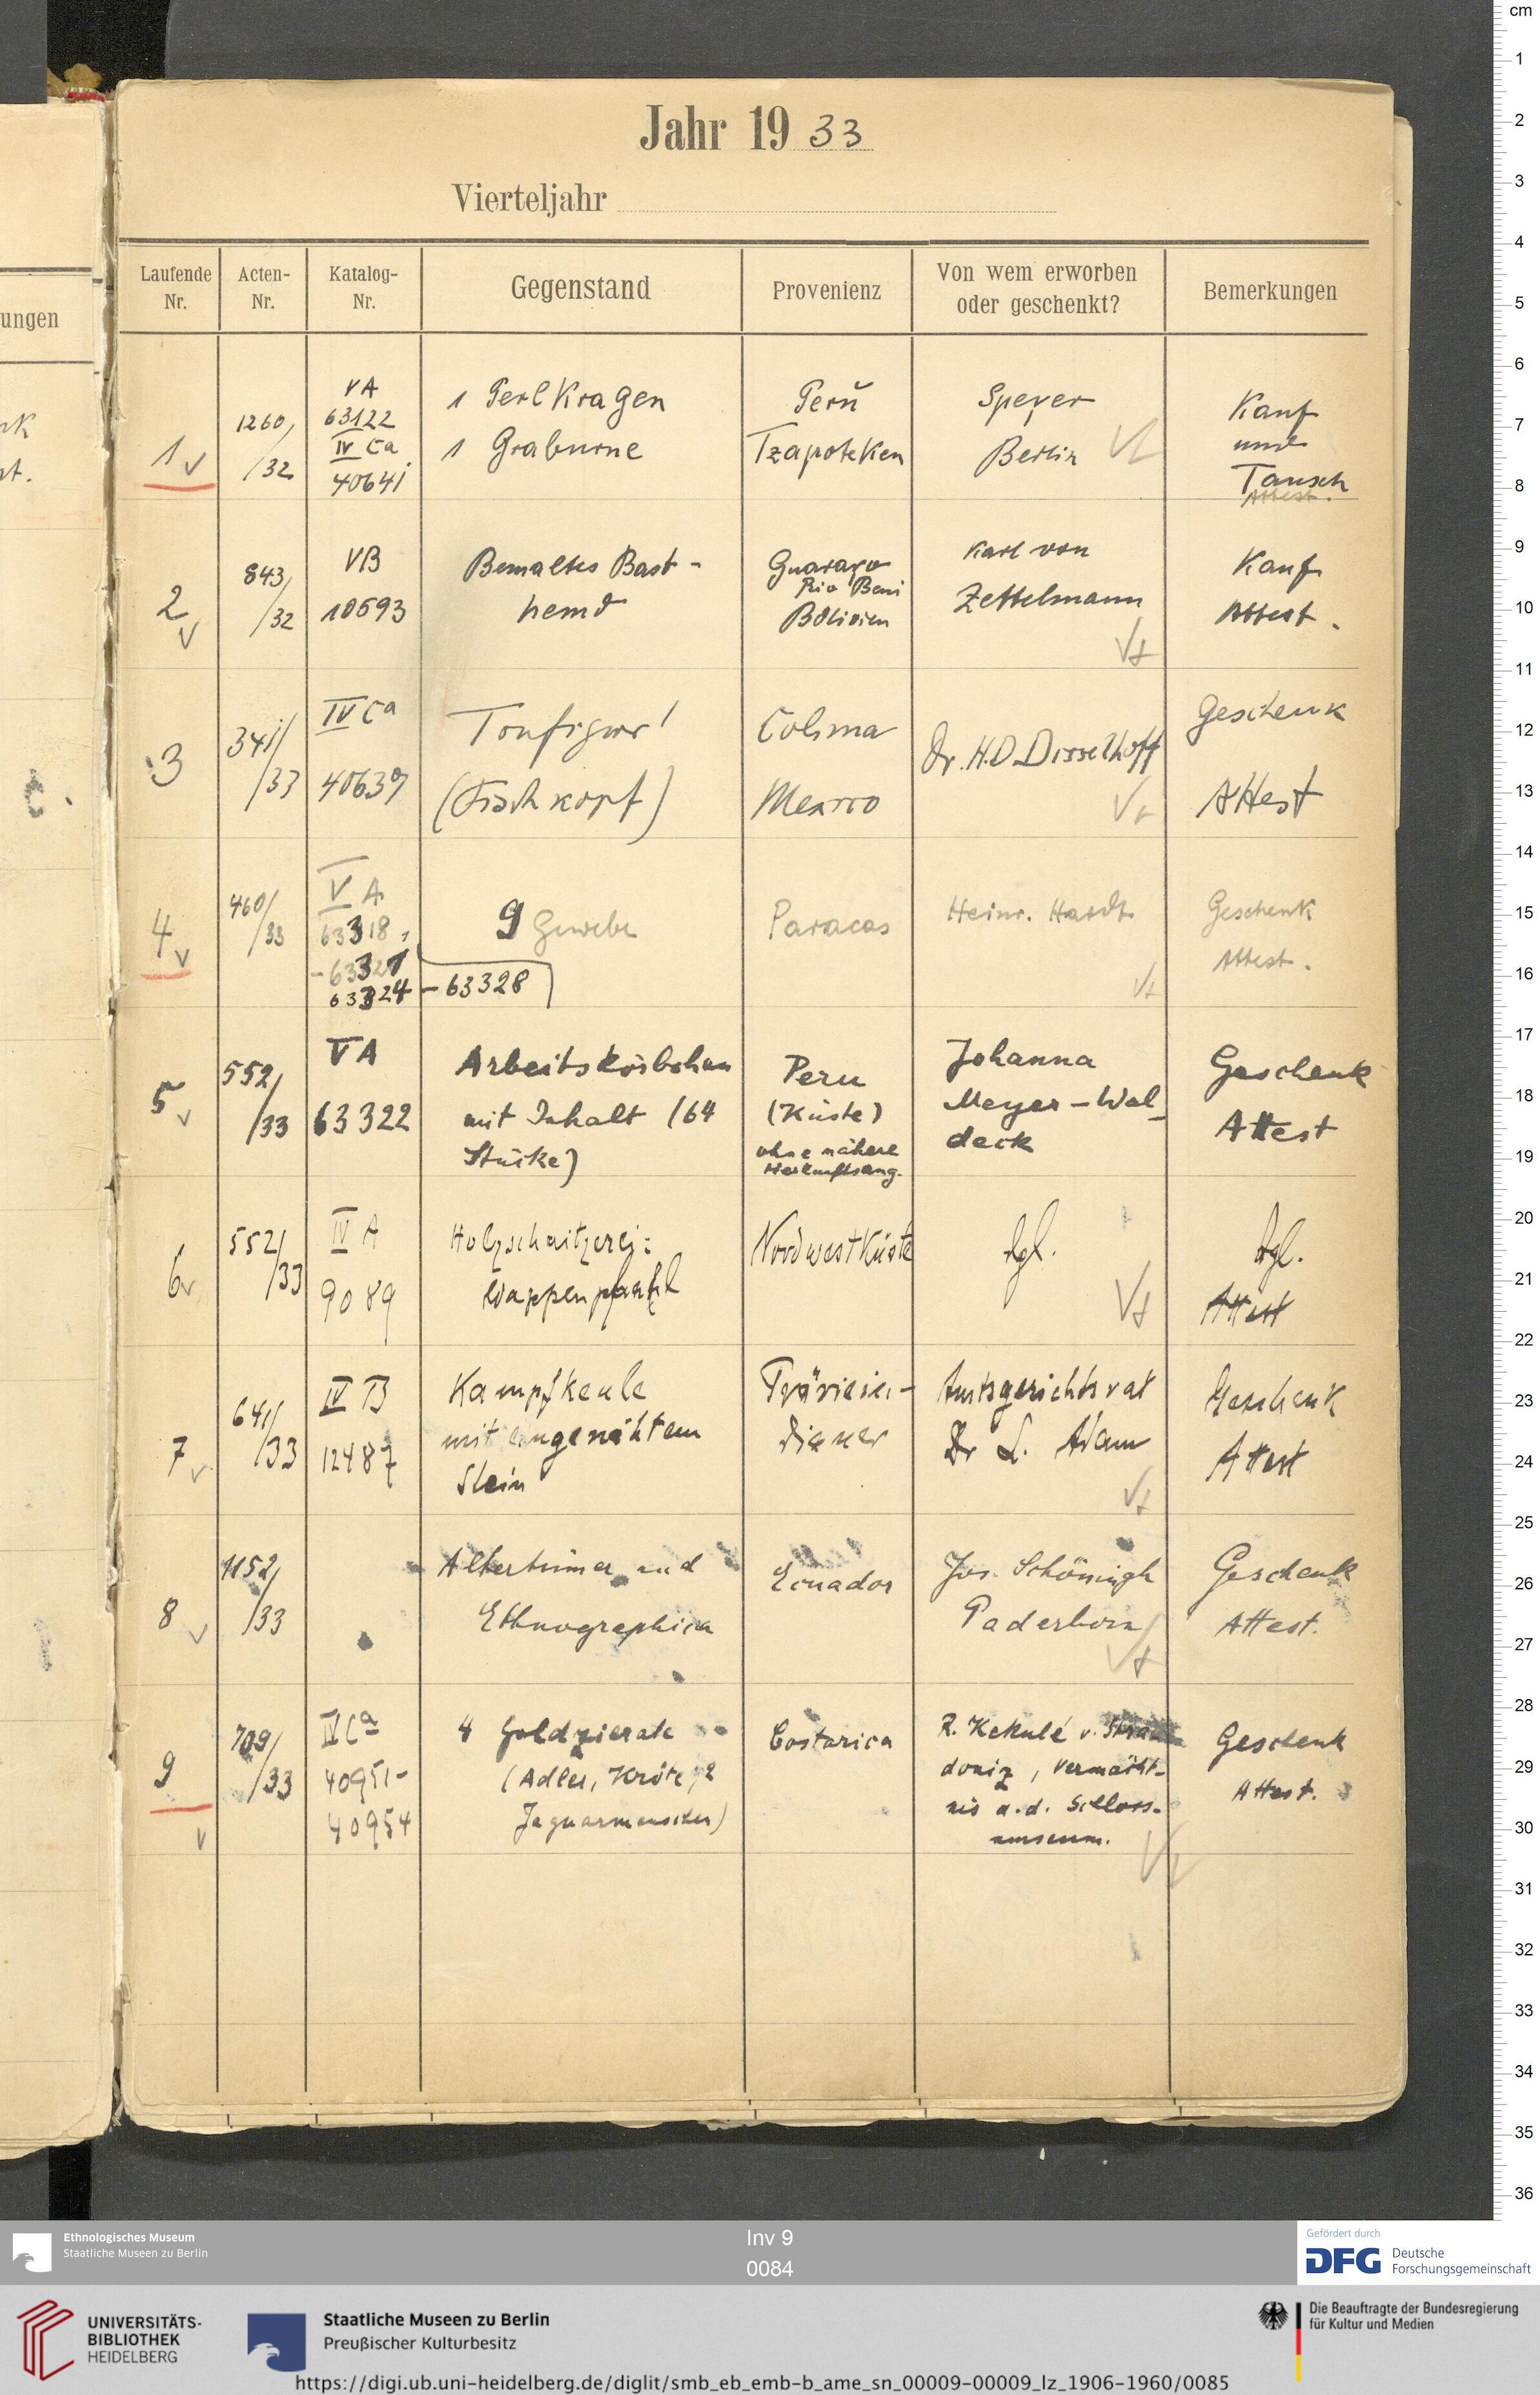 Jahr 19 33
Vierteljahr
Laufende Nr.
Acten-Nr.
Katalog-Nr.
Gegenstand
Provenienz
Von wem erworben oder geschenkt?
Bemerkungen
ungen
1
1260/
/32
VA
63122
IV Ca
40641
1 Perlkragen
1 Graburne
Peru
Tzapoteken
Speyer
Berlin
Kauf
und
Tausch
Attest.
2
843/
/32
VB
10593
Bemaltes Bast-
hemd
Guarayo
Rio Beni
Bolivien
Karl von
Zettelmann
Kauf
Attest.
3
341/
/33
IV Ca
40639
Tonfigur
(Fischkopf)
Colima
Mexico
Dr. H.D. Disselhoff
Geschenk
Attest
4
460/
/33
VA
63318,
-63321
63324 - 63328
9 Gewebe
Paracas
Heinr. Hardt
Geschenk
Attest.
5
552/
/33
VA
63322
Arbeitskörbchen
mit Inhalt (64
Stücke)
Peru
(Küste)
ohne nähere
Herkunftsang.
Johanna
Meyer-Wal-
deck
Geschenk
Attest
6
552/
/33
IV A
9089
Holzschnitzerei:
Wappenpfahl
Nordwestküste
dgl.
dgl.
Attest
7
641/
/33
IV B
12487
Kampfkeule
mit eingenähtem
Stein
Präriein-
dianer
Amtsgerichtsrat
Dr L. Adam
Geschenk
Attest
8
1152/
/33
Altertümer und
Ethnographica
Ecuador
Jos. Schöningh
Paderborn
Geschenk
Attest.
9
709/
/33
IV Ca
40951-
40954
4 Goldzierate
(Adler, Kröte, 2
Jaguarmenschen)
Costarica
R. Kekulé v. Stra
doniz, Vermächt-
nis a.d. Schloss-
museum.
Geschenk
Attest.
cm
1
2
3
4
5
6
7
8
9
10
11
12
13
14
15
16
17
18
19
20
21
22
23
24
25
26
27
28
29
30
31
32
33
34
35
36
Ethnologisches Museum
Staatliche Museen zu Berlin
Inv 9
0084
Gefördert durch
DFG Deutsche
Forschungsgemeinschaft
UNIVERSITÄTS-
BIBLIOTHEK
HEIDELBERG
Staatliche Museen zu Berlin
Preußischer Kulturbesitz
Die Beauftragte der Bundesregierung
für Kultur und Medien
https://digi.ub.uni-heidelberg.de/diglit/smb_eb_emb-b_ame_sn_00009-00009_lz_1906-1960/0085